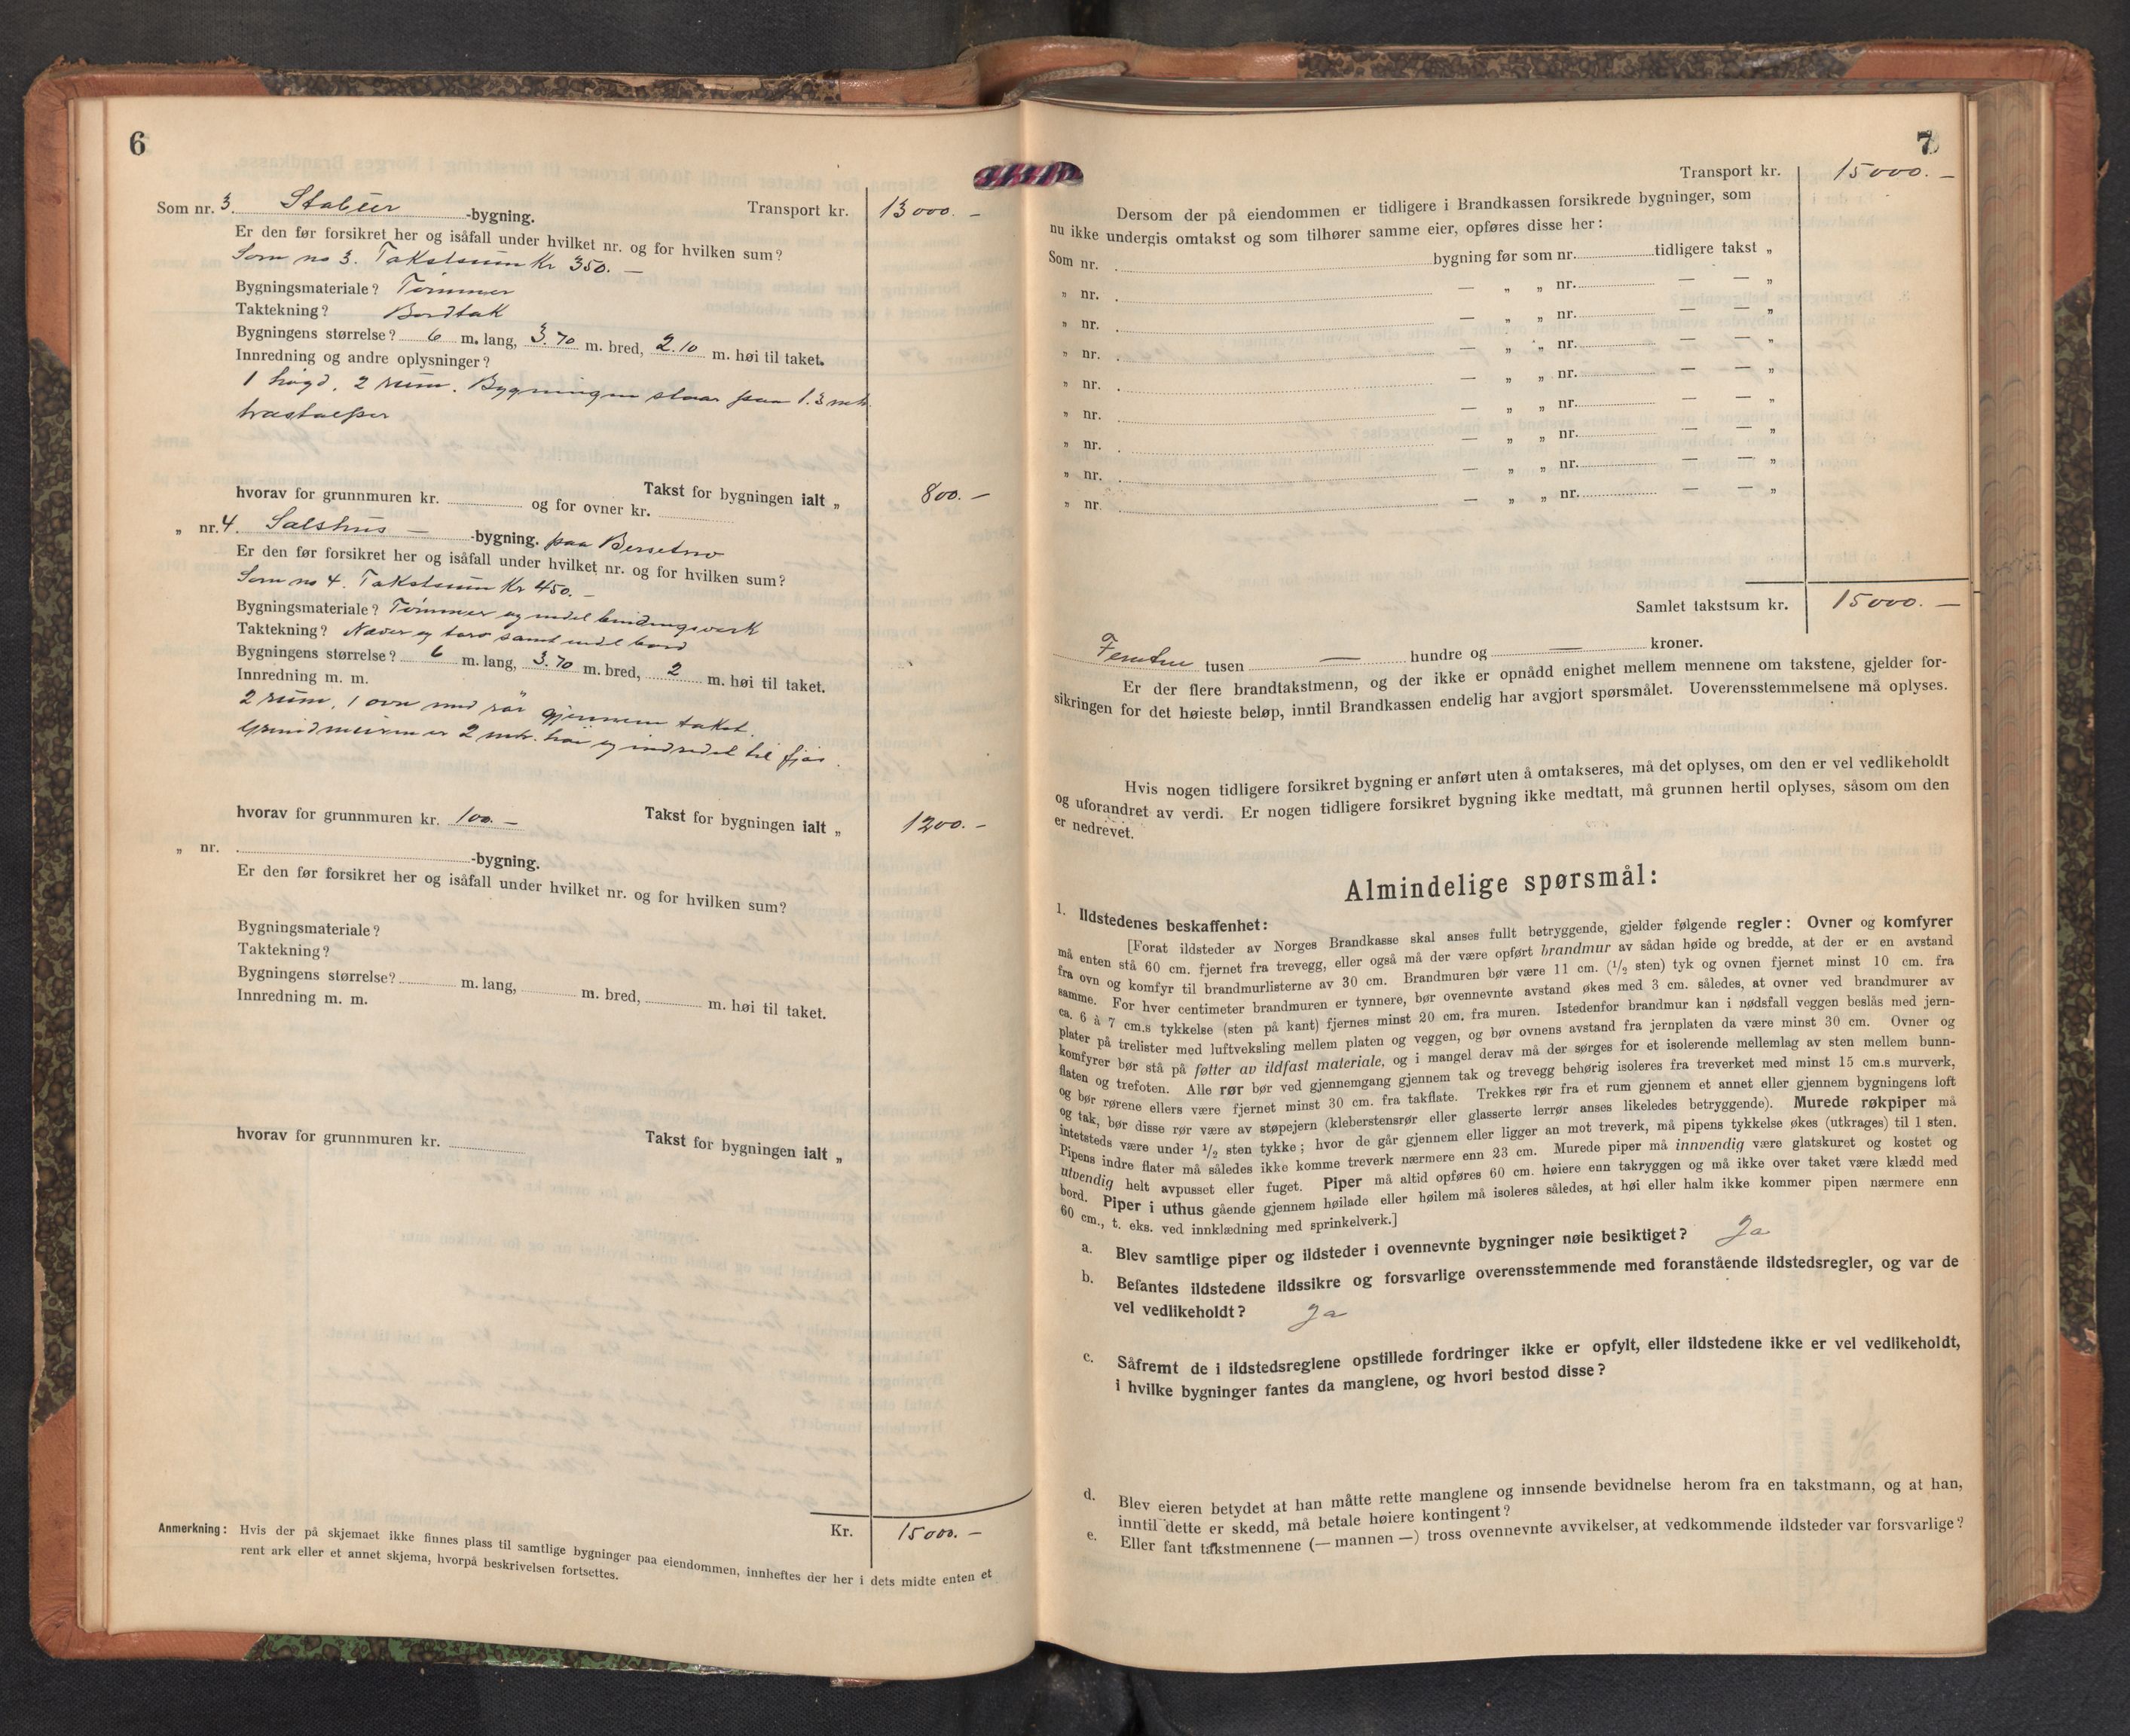 6
Som nr. 3. Stabur -bygning. Transport kr. 13000. –
Er den før forsikret her og isåfall under hvilket nr. og for hvilken sum?
Som no 3. Takstsum Kr 350. –
Bygningsmateriale? Tømmer
Taktekning? Bordtak
Bygningens størrelse? 6 m. lang, 3.70 m. bred, 2.10 m. høi til taket.
Innredning og andre oplysninger?
1 høgd, 2 rum. Bygningen staar paa 1.3 mtr.
træstolper
Takst for bygningen ialt „ 800. –
hvorav for grunnmuren kr. og for ovner kr.
„ nr. 4. Selshus – -bygning. paa Bersetno
Er den før forsikret her og isåfall under hvilket nr. og for hvilken sum?
Som no 4. Takstsum Kr 450. –
Bygningsmateriale? Tømmer og endel bindingsverk
Taktekning? Næver og torv samt endel bord
Bygningens størrelse? 6 m. lang, 3.70 m. bred, 2 m. høi til taket.
Innredning m. m.
2 rum, 1 ovn med rør gjennem taket.
Grundmuren er 2 mtr. høi og indredet til fjøs.
hvorav for grunnmuren kr. 100. – Takst for bygningen ialt „ 1200. –
„ nr. -bygning.
Er den før forsikret her og isåfall under hvilket nr. og for hvilken sum?
Bygningsmateriale?
Taktekning?
Bygningens størrelse? m. lang, m. bred, m. høi til taket.
Innredning m. m.
hvorav for grunnmuren kr. Takst for bygningen ialt „
Kr. 15000. –
Anmerkning: Hvis der på skjemaet ikke finnes plass til samtlige bygninger paa eiendommen, innheftes der her i dets midte enten et
rent ark eller et annet skjema, hvorpå beskrivelsen fortsettes.
7
Transport kr. 15000. –
Dersom der på eiendommen er tidligere i Brandkassen forsikrede bygninger, som
nu ikke undergis omtakst og som tilhører samme eier, opføres disse her:
Som nr. bygning før som nr. tidligere takst „
„ nr. — „ „ nr. — — „
„ nr. — „ „ nr. — — „
„ nr. — „ „ nr. — — „
„ nr. — „ „ nr. — — „
„ nr. — „ „ nr. — — „
„ nr. — „ „ nr. — — „
„ nr. — „ „ nr. — — „
„ nr. — „ „ nr. — — „
Samlet takstsum kr. 15000. –
Femten tusen — hundre og — kroner.
Er der flere brandtakstmenn, og der ikke er opnådd enighet mellem mennene om takstene, gjelder for-
sikringen for det høieste beløp, inntil Brandkassen endelig har avgjort spørsmålet. Uoverensstemmelsene må oplyses.
Hvis nogen tidligere forsikret bygning er anført uten å omtakseres, må det oplyses, om den er vel vedlikeholdt
og uforandret av verdi. Er nogen tidligere forsikret bygning ikke medtatt, må grunnen hertil oplyses, såsom om den
er nedrevet.
Almindelige spørsmål:
1. Ildstedenes beskaffenhet:
[Forat ildsteder av Norges Brandkasse skal anses fullt betryggende, gjelder følgende regler: Ovner og komfyrer
må enten stå 60 cm. fjernet fra trevegg, eller også må der være opført brandmur av sådan høide og bredde, at der er en avstand
fra ovn og komfyr til brandmurlisterne av 30 cm. Brandmuren bør være 11 cm. (1/2 sten) tyk og ovnen fjernet minst 10 cm. fra
samme. For hver centimeter brandmuren er tynnere, bør ovennevnte avstand økes med 3 cm. således, at ovner ved brandmurer av
ca. 6 à 7 cm.s tykkelse (sten på kant) fjernes minst 20 cm. fra muren. Istedenfor brandmur kan i nødsfall veggen beslås med jern-
plater på trelister med luftveksling mellem platen og veggen, og bør ovnens avstand fra jernplaten da være minst 30 cm. Ovner og
komfyrer bør stå på føtter av ildfast materiale, og i mangel derav må der sørges for et isolerende mellemlag av sten mellem bunn-
flaten og trefoten. Alle rør bør ved gjennemgang gjennem tak og trevegg behørig isoleres fra treverket med minst 15 cm.s murverk,
og bør rørene ellers være fjernet minst 30 cm. fra takflate. Trekkes rør fra et rum gjennem et annet eller gjennem bygningens loft
og tak, bør disse rør være av støpejern (kleberstensrør eller glasserte lerrør anses likeledes betryggende). Murede røkpiper må
intetsteds være under 1/2 sten tykke; hvor de går gjennem eller ligger an mot treverk, må pipens tykkelse økes (utkrages) til 1 sten.
Pipens indre flater må således ikke komme treverk nærmere enn 23 cm. Murede piper må innvendig være glatskuret og kostet og
utvendig helt avpusset eller fuget. Piper må altid opføres 60 cm. høiere enn takryggen og må ikke over taket være klædd med
bord. Piper i uthus gående gjennem høilade eller høilem må isoleres således, at høi eller halm ikke kommer pipen nærmere enn
60 cm., t. eks. ved innklædning med sprinkelverk.]
a. Blev samtlige piper og ildsteder i ovennevnte bygninger nøie besiktiget? Ja
b. Befantes ildstedene ildssikre og forsvarlige overensstemmende med foranstående ildstedsregler, og var de
vel vedlikeholdt? Ja
c. Såfremt de i ildstedsreglene opstillede fordringer ikke er opfylt, eller ildstedene ikke er vel vedlikeholdt,
i hvilke bygninger fantes da manglene, og hvori bestod disse?
d. Blev eieren betydet at han måtte rette manglene og innsende bevidnelse herom fra en takstmann, og at han,
inntil dette er skedd, må betale høiere kontingent?
e. Eller fant takstmennene (— mannen —) tross ovennevnte avvikelser, at vedkommende ildsteder var forsvarlige?